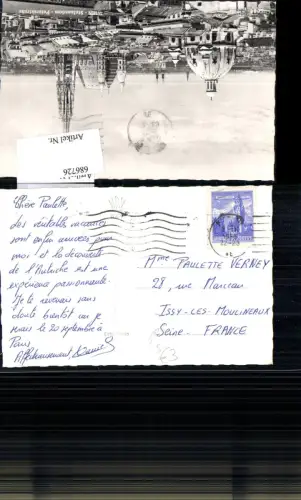 Artikel Nr.
686726
Chère Paulette,
Les véritables vacances
sont enfin arrivées pour
moi et la découverte
de l'Autriche est une
expérience passionnante.
Je te reverrai sans
doute bientôt car je
serai le 20 septembre à
Paris
Affectueusement
Mme PAULETTE VERNEY
28, rue Marceau
ISSY-LES-MOULINEAUX
Seine. FRANCE
63